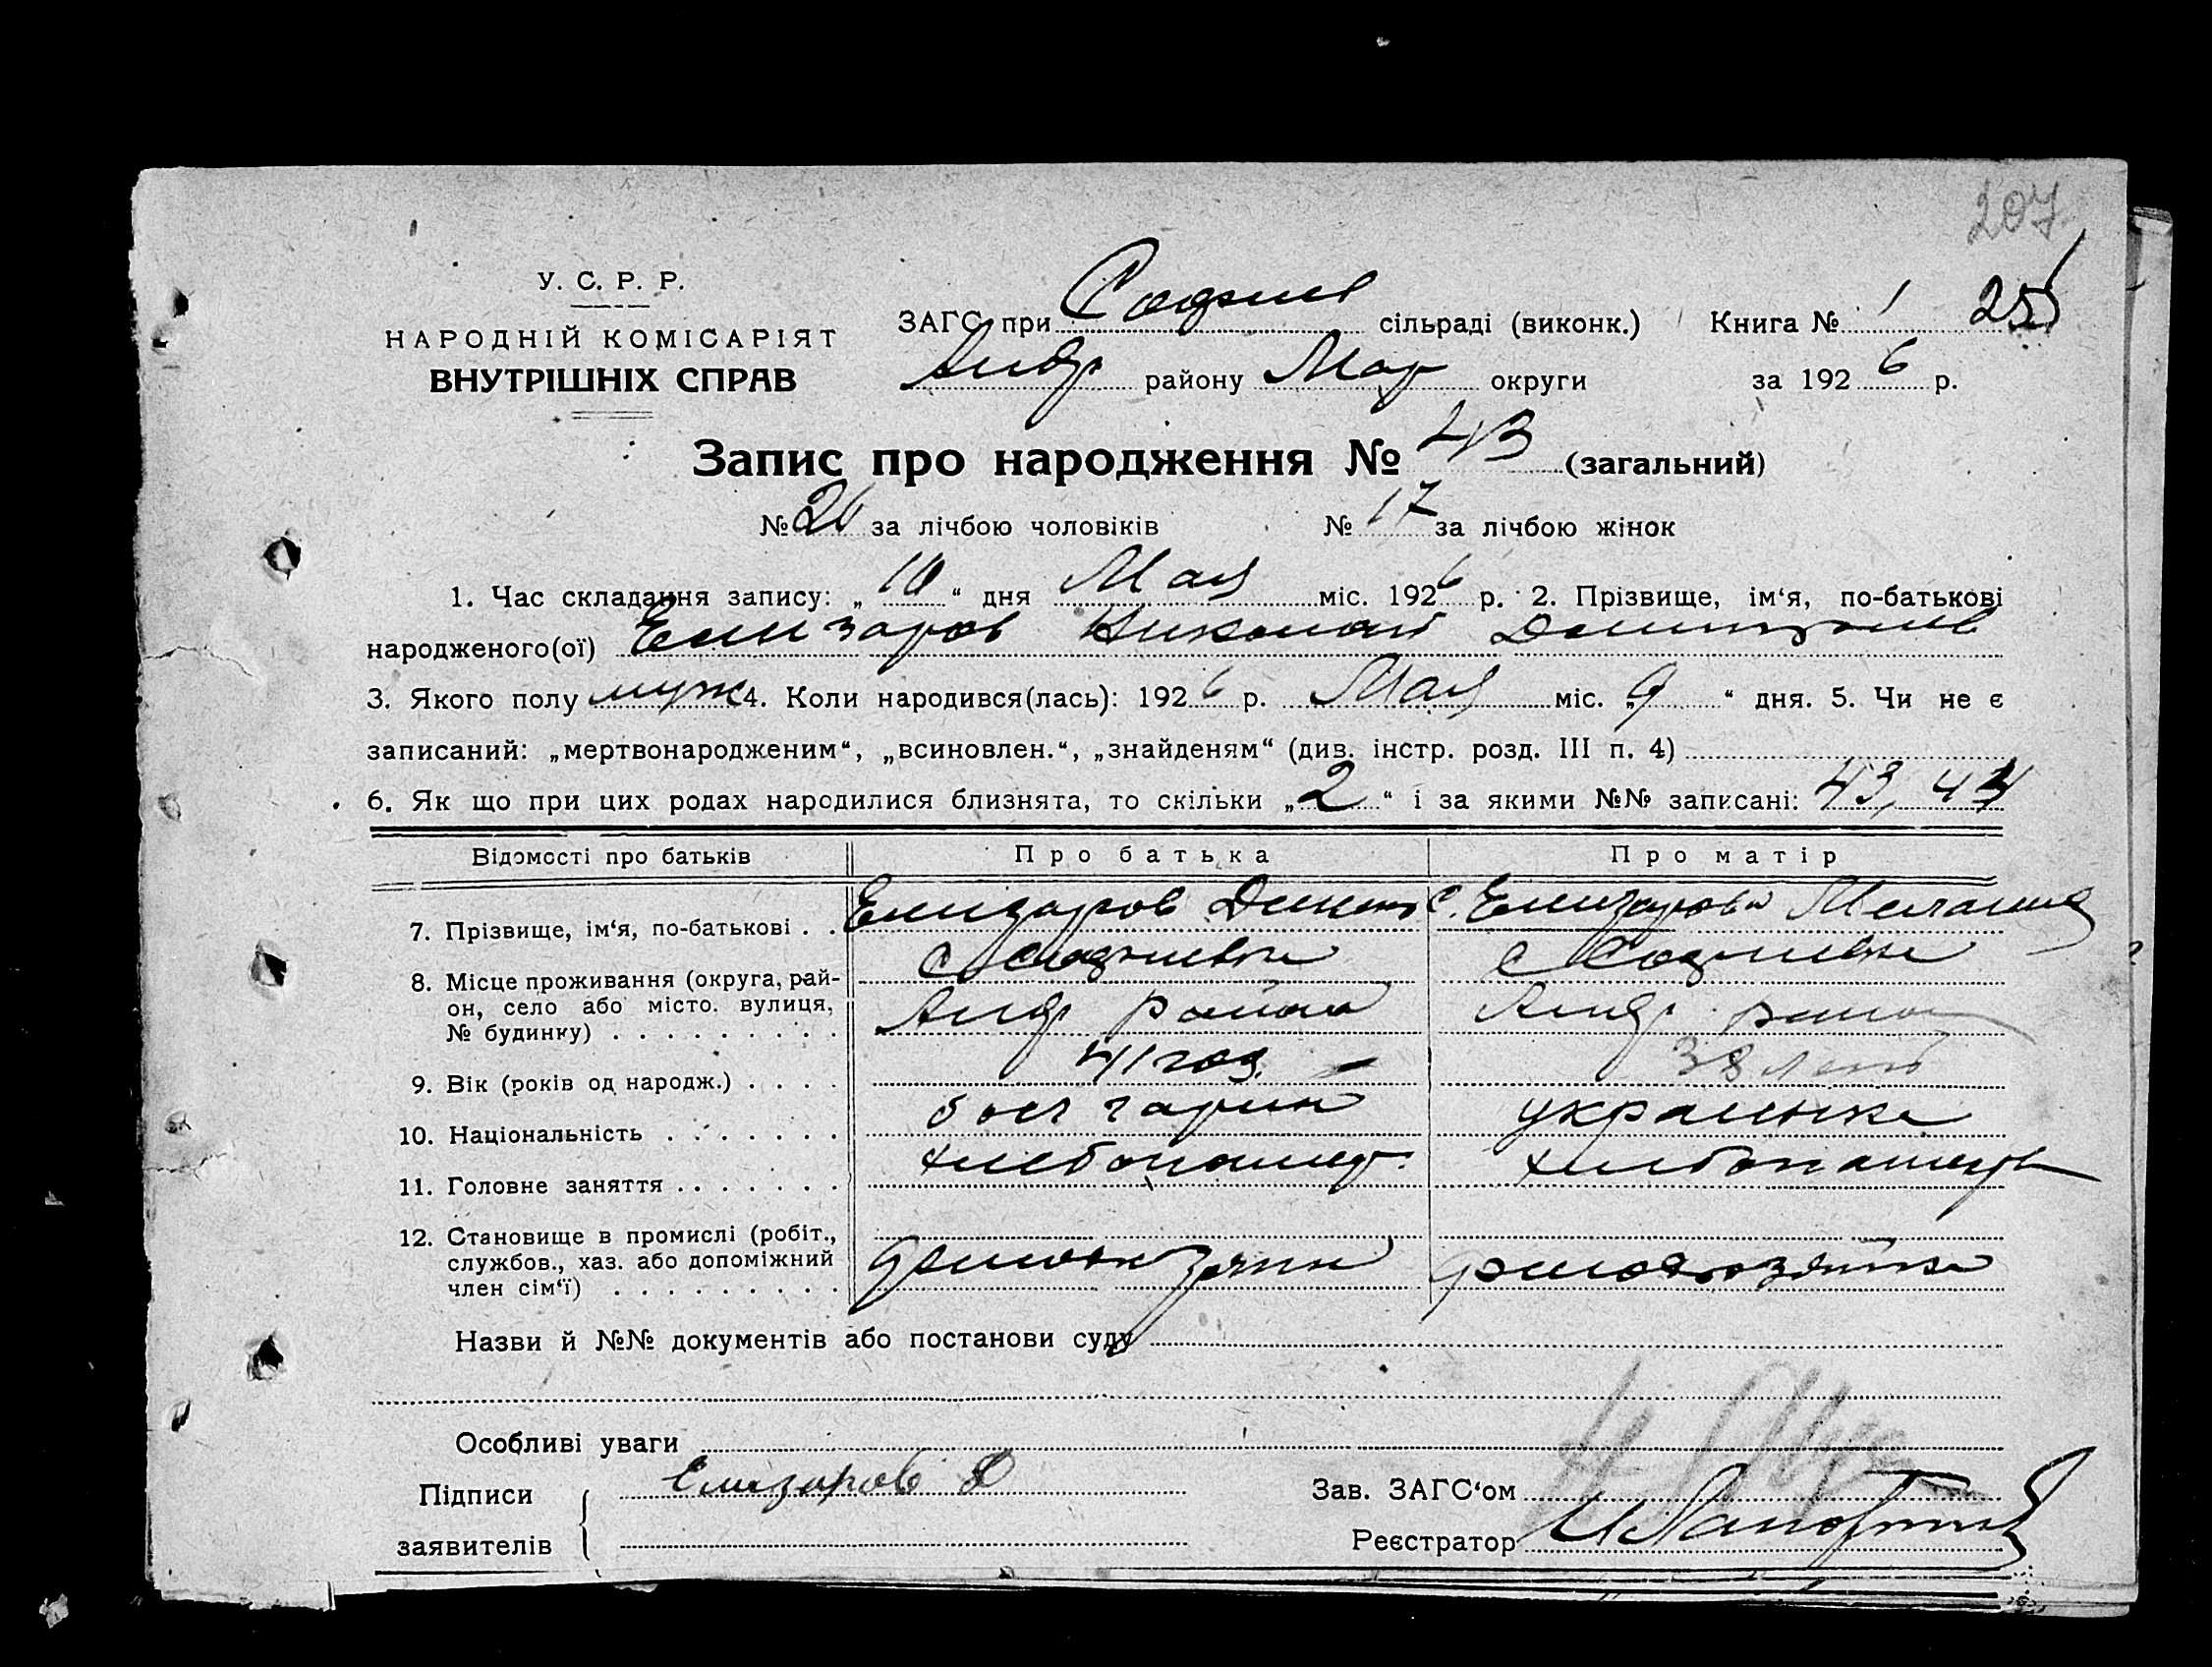 207
У. С. Р. Р.
НАРОДНІЙ КОМІСАРІЯТ
ВНУТРІШНІХ СПРАВ
ЗАГС при Софиев сільраді (виконк.) Книга № 1
Андр району Мар округи за 1926 р.
Запис про народження № 43 (загальний)
№ 26 за лічбою чоловіків № 17 за лічбою жінок
1. Час складання запису: „10“ дня Мая міс. 1926 р. 2. Прізвище, ім‘я, по-батькові
народженого(ої) Елизаров Николай
3. Якого полу муж 4. Коли народився(лась): 1926 р. Мая міс. „9“ дня. 5. Чи не є
записаний: „мертвонародженим“, „всиновлен.“, „знайденям“ (див. інстр. розд. III п. 4)
6. Як що при цих родах народилися близнята, то скільки „2“ і за якими №№ записані: 43, 44
Відомості про батьків Про батька Про матір
7. Прізвище, ім‘я, по-батькові . . Елизаров Елизарова Мелания
8. Місце проживання (округа, рай- с Софиевка с Софиевка
он, село або місто. вулиця,
№ будинку) . . . . . . . . . Андр района Андр. района
9. Вік (років од народж.) . . . . 41 год. 38 лет
10. Національність . . . . . . . болгарин украинка
11. Головне заняття . . . . . . . хлебопашец. хлебопашец
12. Становище в промислі (робіт.,
службов., хаз. або допоміжний домохозяин домохозяйка
член сім‘ї) . . . . . . . . .
Назви й №№ документів або постанови суду
Особливі уваги
Підписи Елизаров Д Зав. ЗАГС‘ом
заявителів Реєстратор